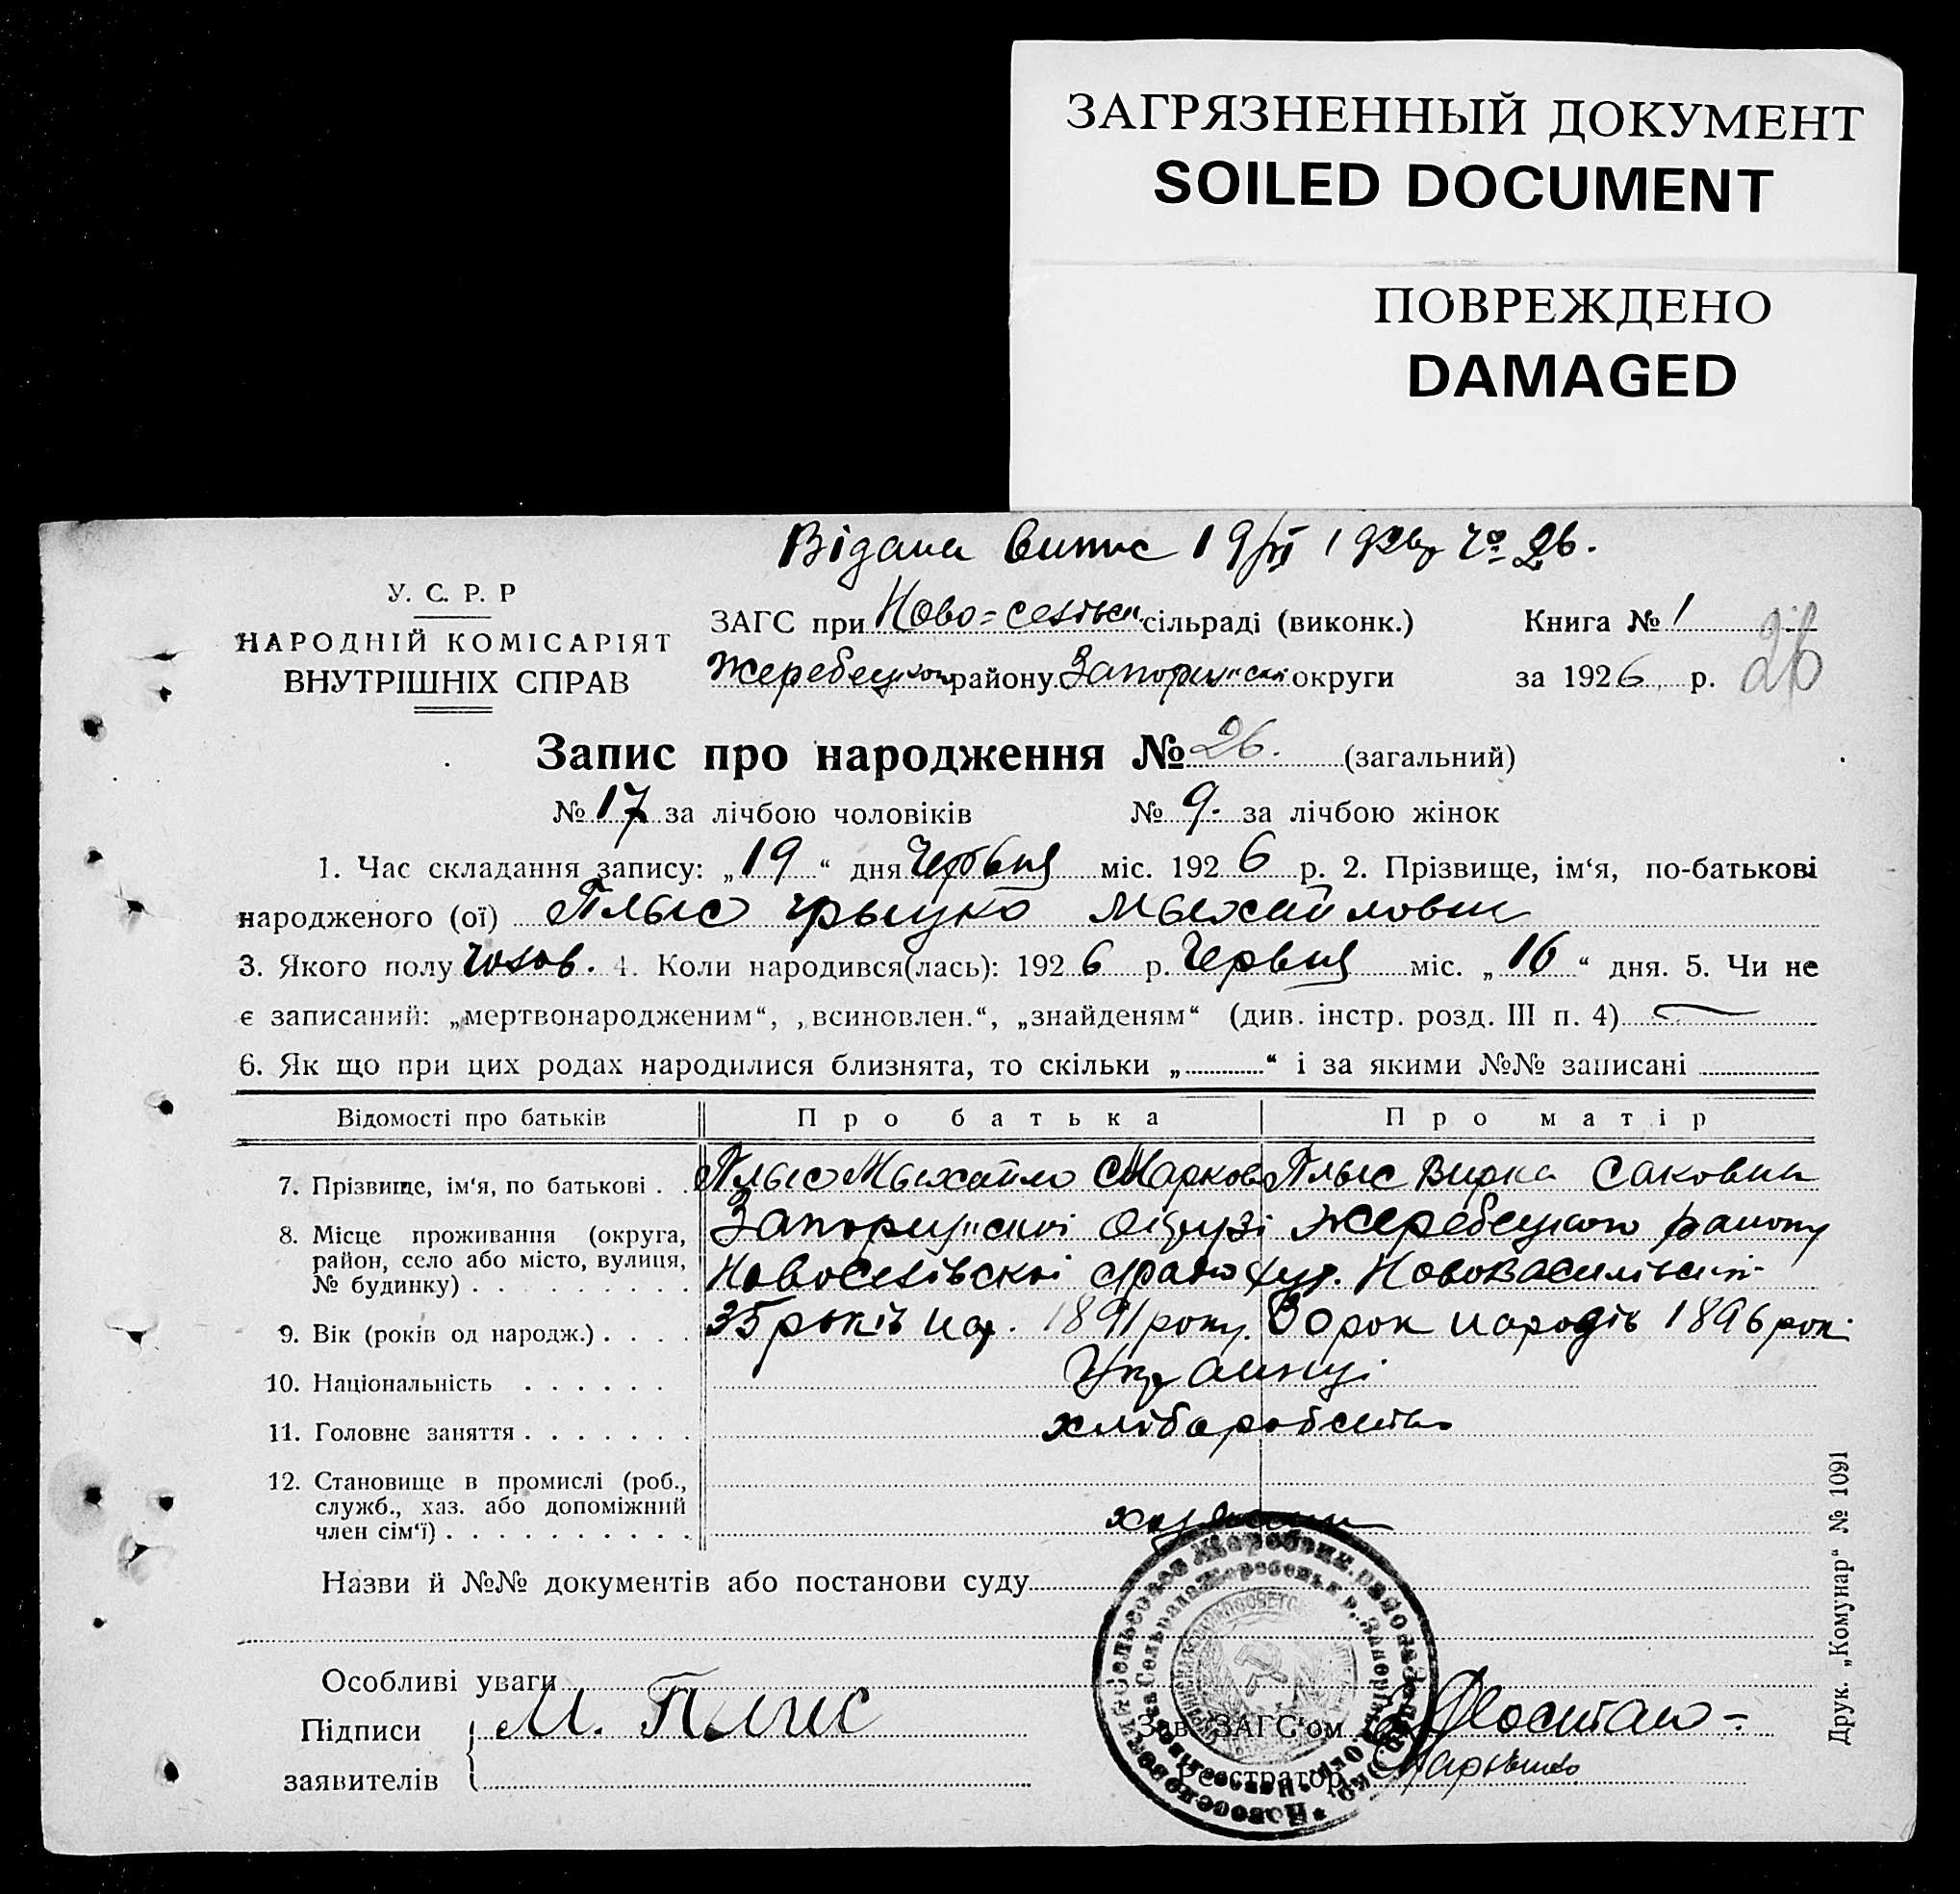 ЗАГРЯЗНЕННЫЙ ДОКУМЕНТ
SOILED DOCUMENT
ПОВРЕЖДЕНО
DAMAGED
Відана випис 19/VI 1926р Чо 26.
У. С. Р. Р
НАРОДНІЙ КОМІСАРІЯТ
ВНУТРІШНІХ СПРАВ
ЗАГС при Ново=селівск. сільраді (виконк.) Книга № 1
Жеребецкого району Запоризьскі округи за 1926 р. 26
Запис про народження № 26. (загальний)
№ 17 за лічбою чоловіків № 9. за лічбою жінок
1. Час складання запису: „19“ дня Червня міс. 1926 р. 2. Прізвище, ім‘я, по-батькові
народженого (ої) Плыс Грыцко Мыхайлович
3. Якого полу Чолов. 4. Коли народився(лась): 1926 р. Червня міс. „16“ дня. 5. Чи не
є записаний: „мертвонародженим“, „всиновлен.“, „знайденям“ (див. інстр. розд. III п. 4)
6. Як що при цих родах народилися близнята, то скільки „ “ і за якими №№ записані
Відомості про батьків Про батька Про матір
7. Прізвище, ім‘я, по батькові . . Плыс Мыхайло Марков Плыс Вирка Саковна
8. Місце проживання (округа, район, село або місто, вулиця, № будинку) . . . . . . . . .
Запоризьскоі округі Жеребецкого району
Новоселівскоі с/рады хут. Нововасилівскі
9. Вік (років од народж.) . . . . 35 років нар. 1891 року. 30 рок народів 1896 рок.
10. Національність . . . . . . Украинці
11. Головне заняття . . . . . . . хлібаробство
12. Становище в промислі (роб., служб., хаз. або допоміжний член сім‘ї) . . . . . . . . . .
Назви й №№ документів або постанови суду
Особливі уваги
Підписи
заявителів
М. Плис
Зав. ЗАГС‘ом
Реєстратор
Друк. „Комунар“ № 1091